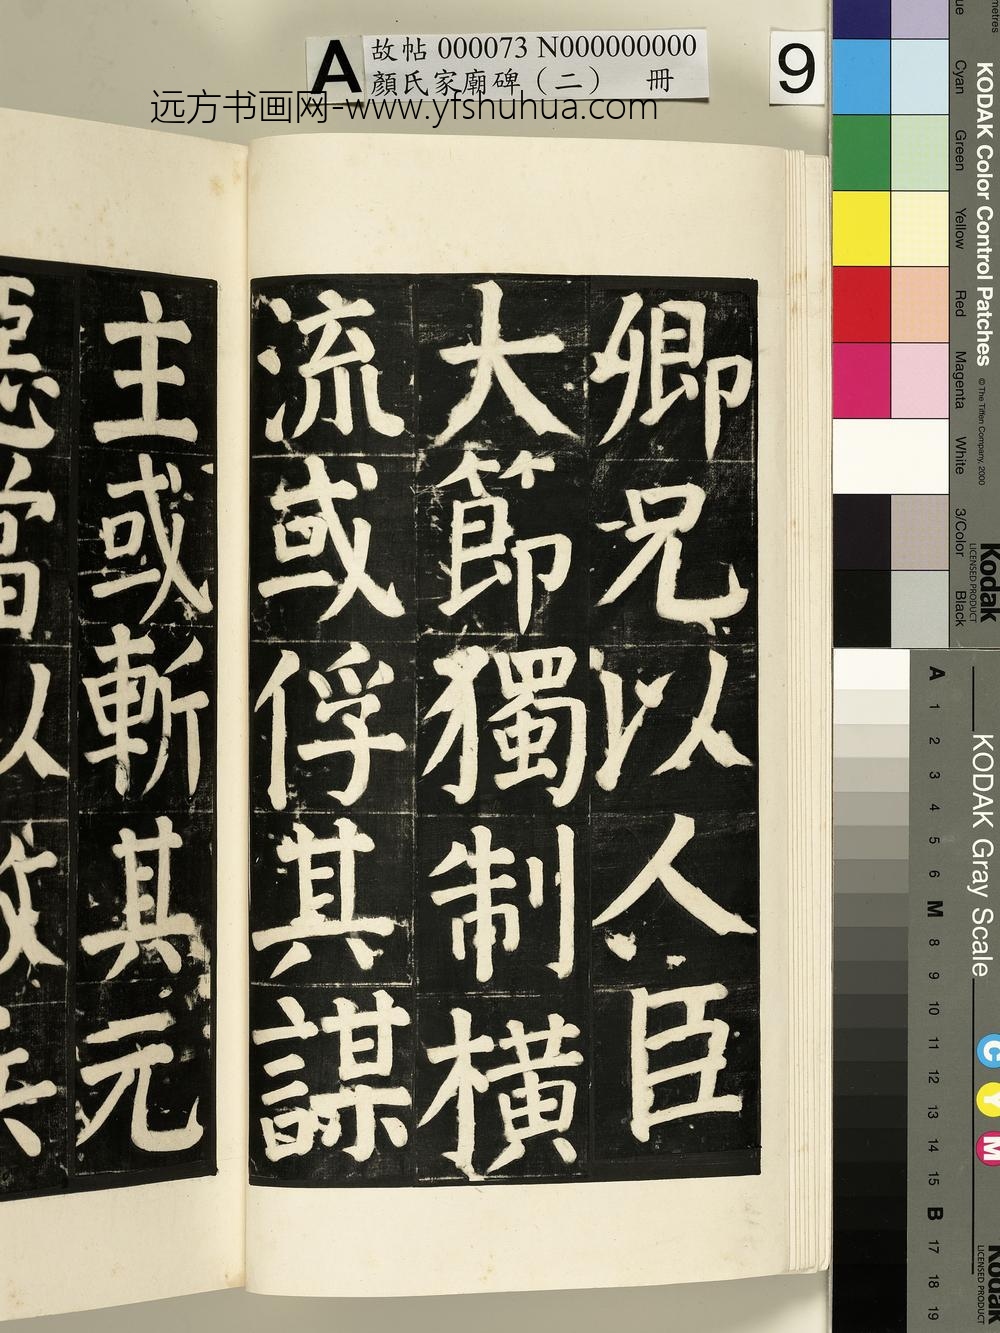 A
故帖 000073 N000000000
顏氏家廟碑（二） 冊
9
远方书画网-www.yfshuhua.com
卿兄以人臣
大節獨制橫
流或俘其謀
主或斬其元
惡當以救兵
KODAK Color Control Patches
© The Tiffen Company, 2000
Kodak
LICENSED PRODUCT
Cyan
Green
Yellow
Red
Magenta
White
3/Color
Black
KODAK Gray Scale
A 1 2 3 4 5 6 M 8 9 10 11 12 13 14 15 B 17 18 19
C
Y
M
Kodak
LICENSED PRODUCT